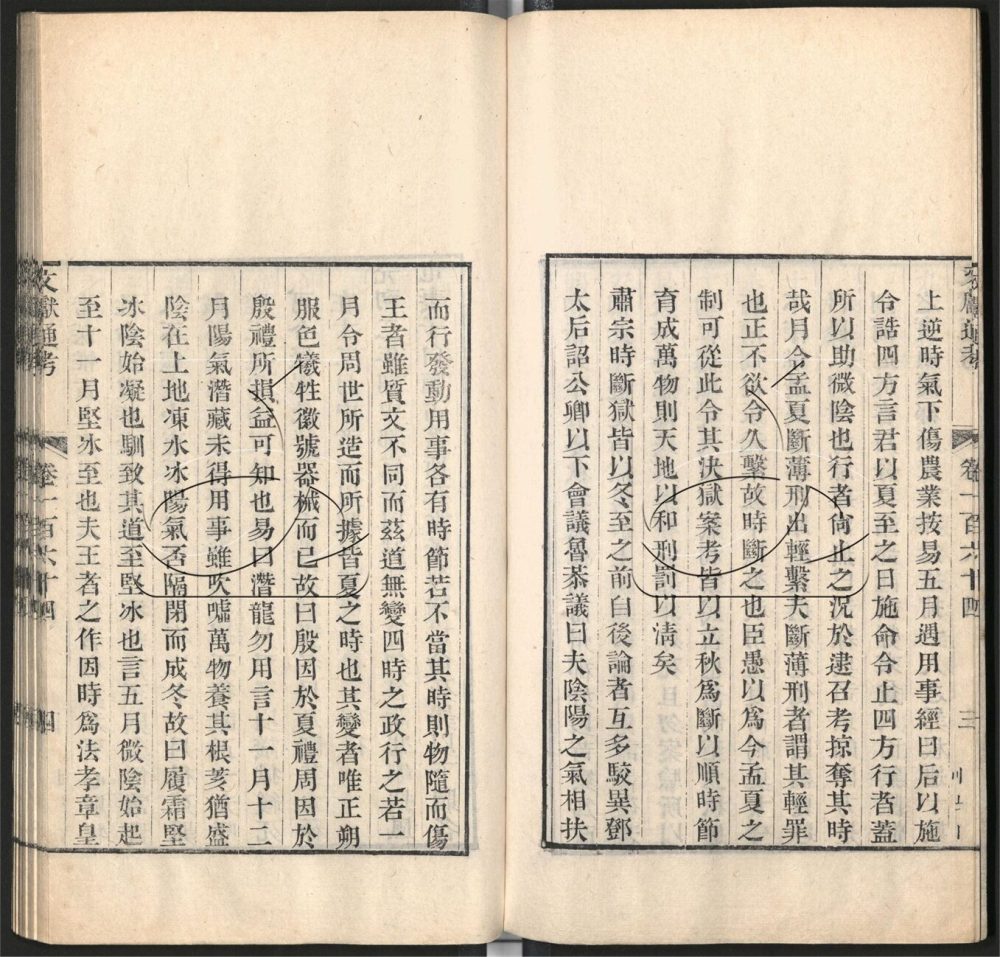 文獻通考 卷一百六十四 三
上逆時氣下傷農業按易五月遇用事經曰后以施
令誥四方言君以夏至之日施命令止四方行者蓋
所以助微陰也行者尙止之況於逮召考掠奪其時
哉月令孟夏斷薄刑出輕繫夫斷薄刑者謂其輕罪
也正不欲令久繫故時斷之也臣愚以爲今孟夏之
制可從此令其決獄案考皆以立秋爲斷以順時節
育成萬物則天地以和刑罰以淸矣
肅宗時斷獄皆以冬至之前自後論者互多駮異鄧
太后詔公卿以下會議魯恭議曰夫陰陽之氣相扶
而行發動用事各有時節若不當其時則物隨而傷
王者雖質文不同而茲道無變四時之政行之若一
月令周世所造而所據皆夏之時也其變者唯正朔
服色犧牲徽號器械而已故曰殷因於夏禮周因於
殷禮所損益可知也易曰潛龍勿用言十一月十二
月陽氣潛藏未得用事雖吹噓萬物養其根荄猶盛
陰在上地凍水冰陽氣否隔閉而成冬故曰履霜堅
冰陰始凝也馴致其道至堅冰也言五月微陰始起
至十一月堅冰至也夫王者之作因時爲法孝章皇
文獻通考 卷一百六十四 四